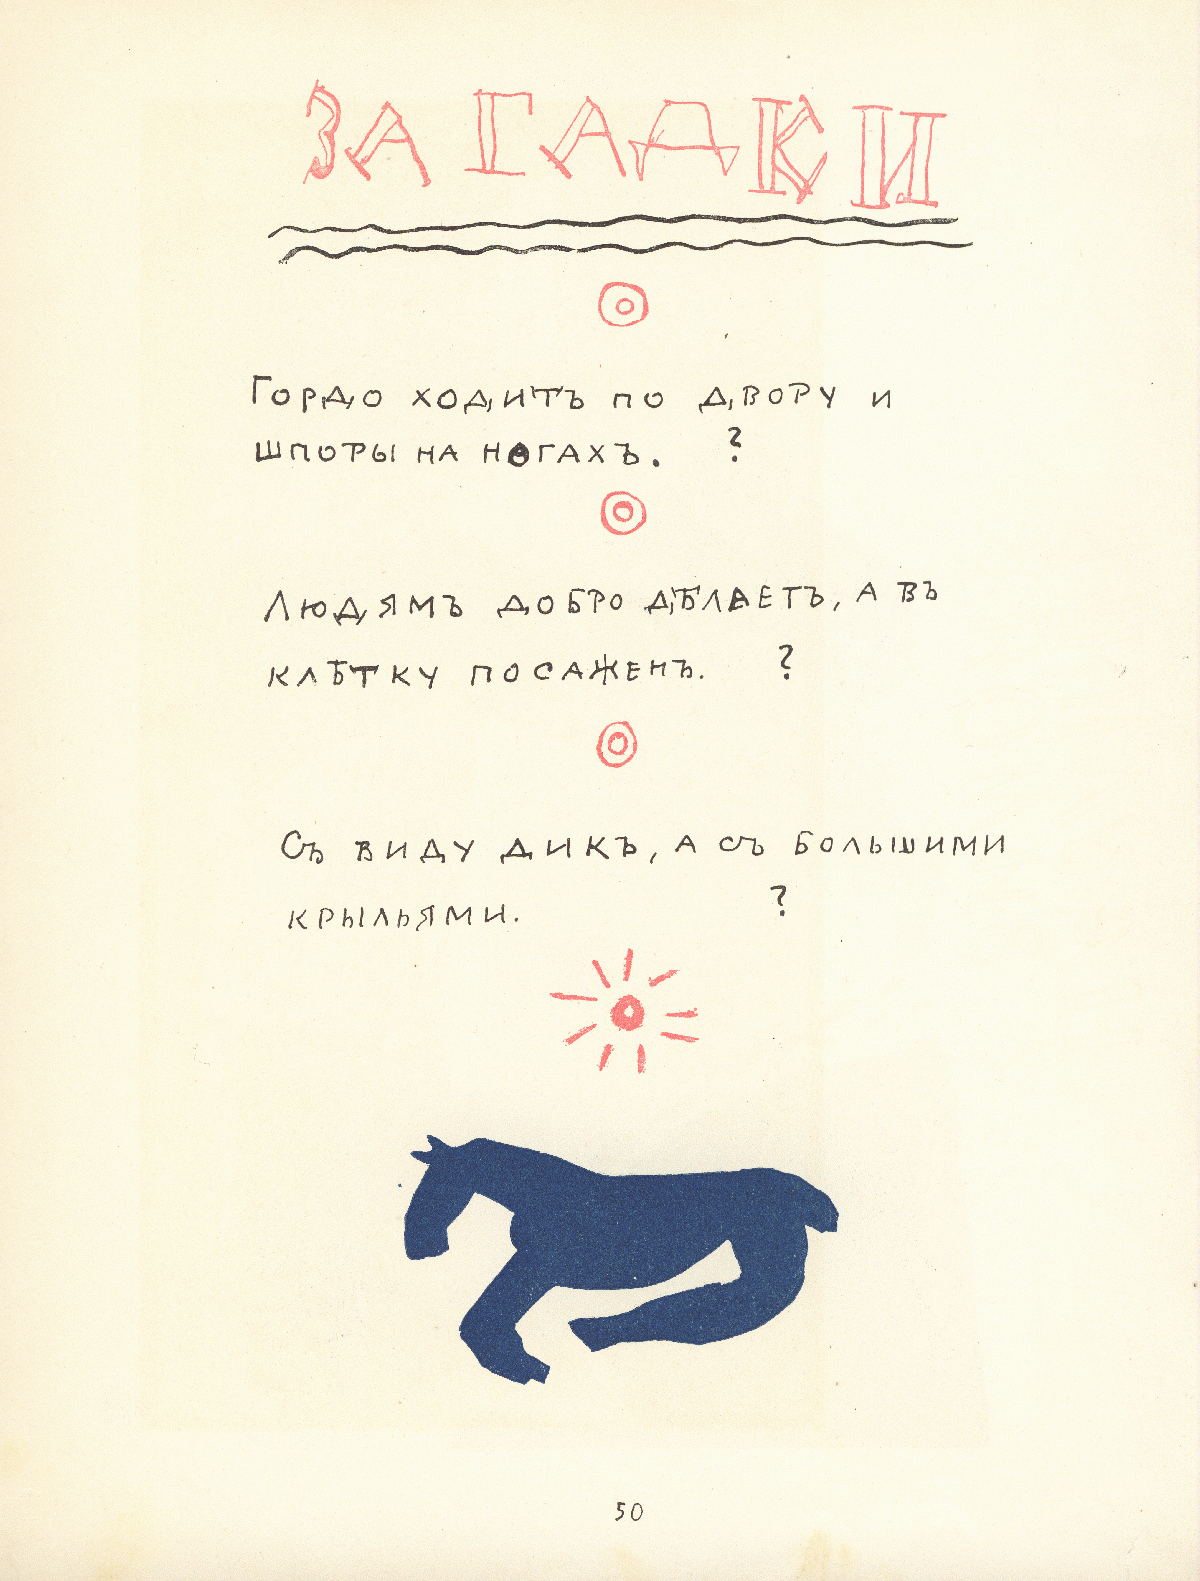 ЗАГАДКИ
Гордо ходитъ по двору и
шпоры на ногахъ. ?
Людямъ добро дѣлаетъ, а въ
клѣтку посаженъ. ?
Съ виду дикъ, а съ большими
крыльями. ?
50